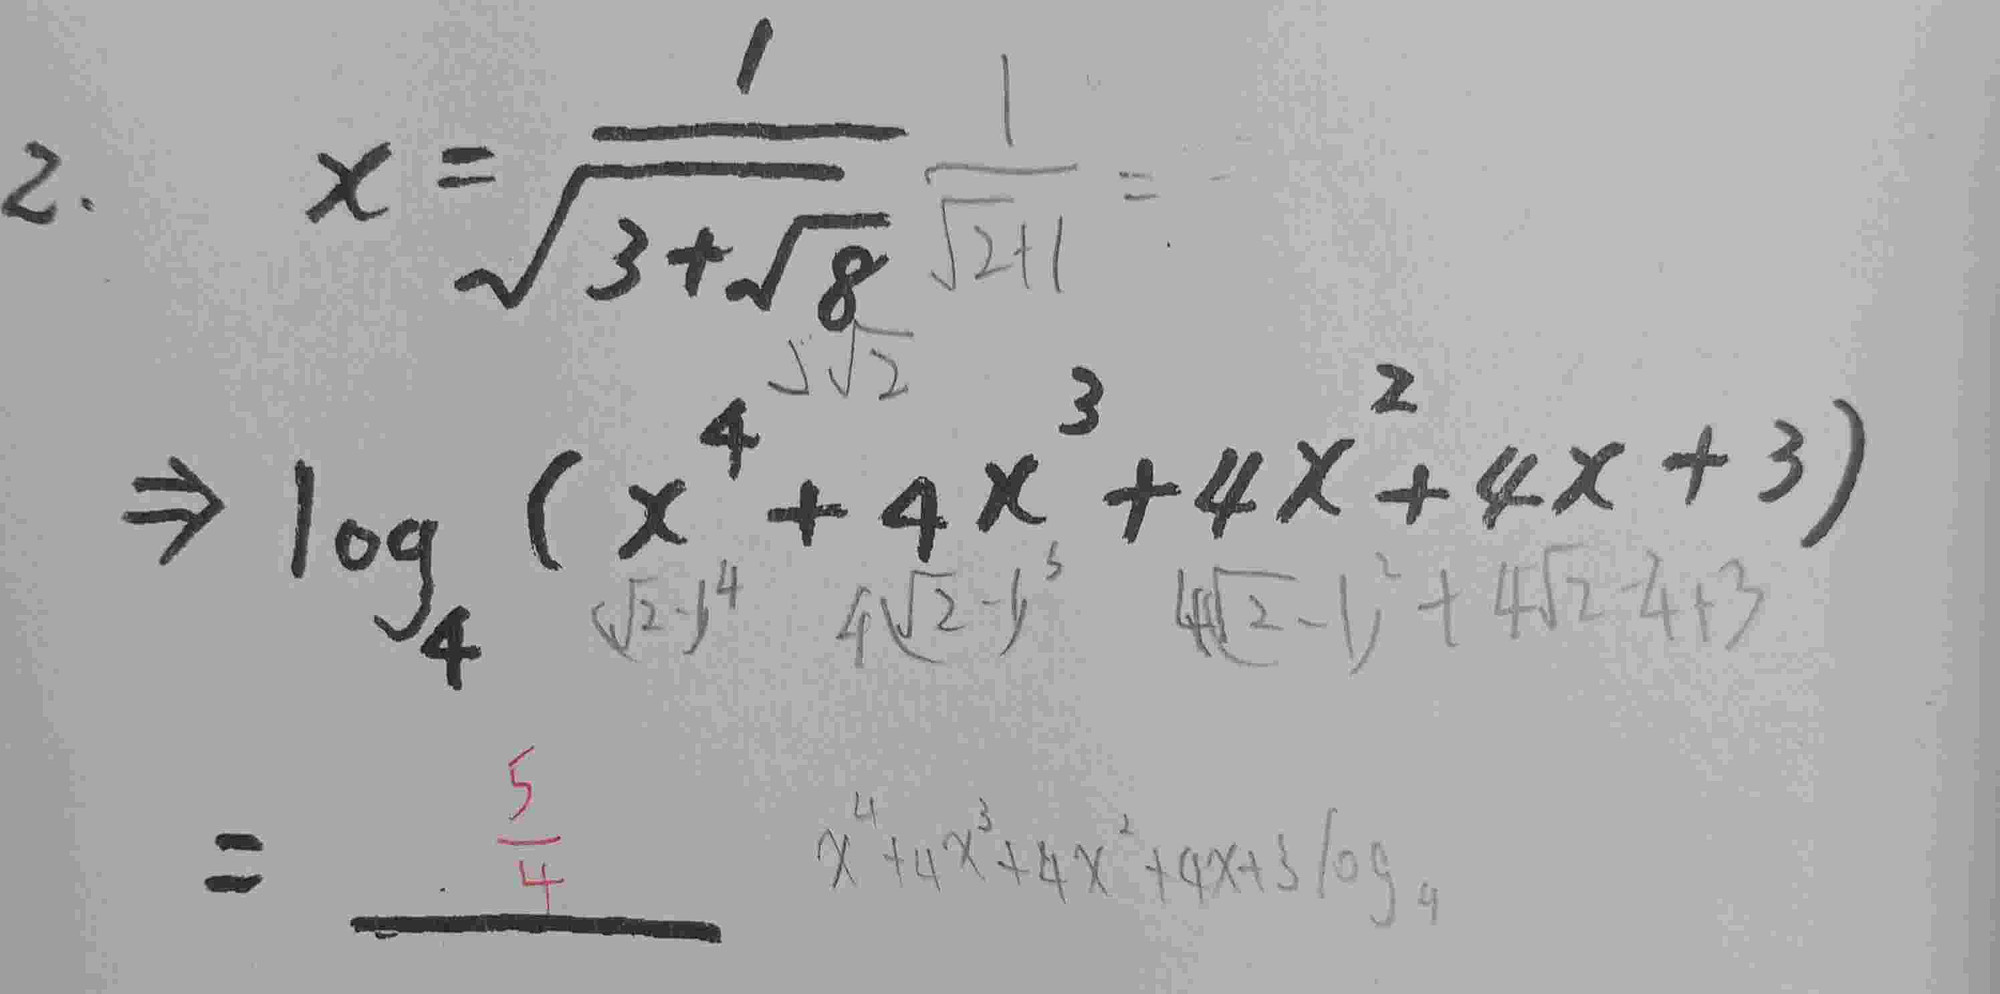 2. x = 1/√(3+√8) 1/(√2+1) =
√2
⇒ log₄ (x⁴ + 4x³ + 4x² + 4x + 3)
(√2-1)⁴ 4(√2-1)³ 4(√2-1)² + 4√2-4+3
= 5/4 x⁴+4x³+4x²+4x+3 log₄